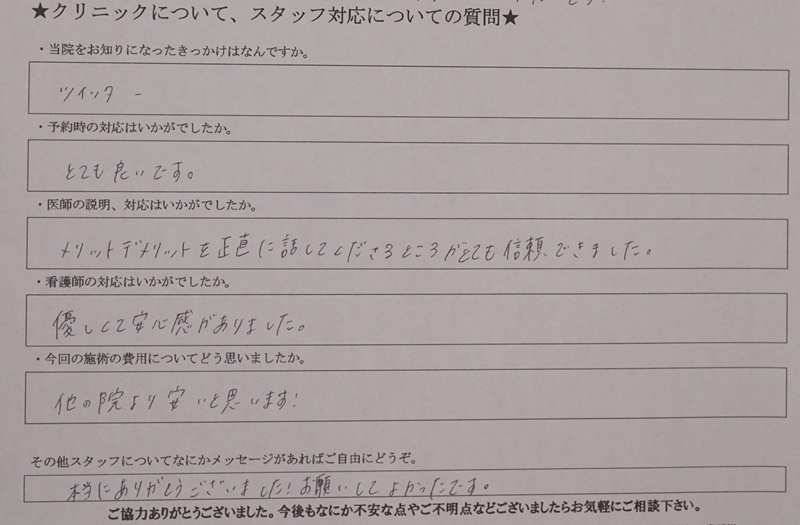 ★クリニックについて、スタッフ対応についての質問★
・当院をお知りになったきっかけはなんですか。
ツイッター
・予約時の対応はいかがでしたか。
とても良いです。
・医師の説明、対応はいかがでしたか。
メリットデメリットを正直に話してくださるところがとても信頼できました。
・看護師の対応はいかがでしたか。
優しくて安心感がありました。
・今回の施術の費用についてどう思いましたか。
他の院より安いと思います!
その他スタッフについてなにかメッセージがあればご自由にどうぞ。
本当にありがとうございました!お願いしてよかったです。
ご協力ありがとうございました。今後もなにか不安な点やご不明点などございましたらお気軽にご相談下さい。